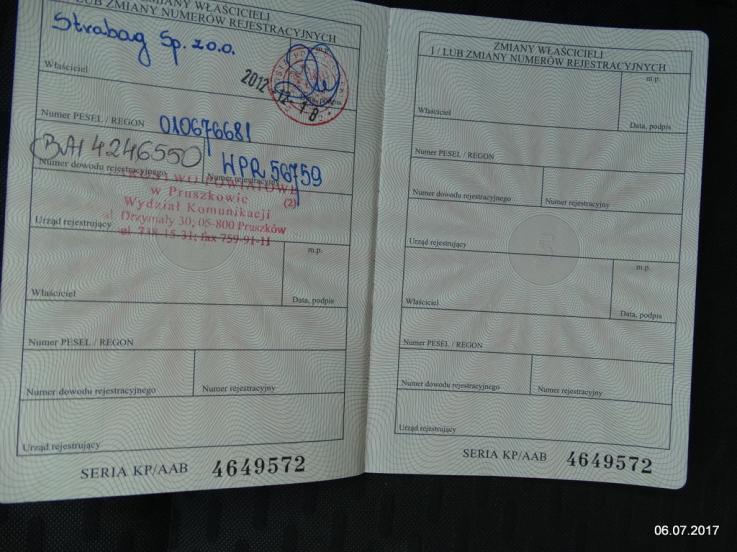 ZMIANY WŁAŚCICIELI
I / LUB ZMIANY NUMERÓW REJESTRACYJNYCH
Strabag Sp. z o.o.
m.p.
2012 -12- 1 8
Właściciel
Numer PESEL / REGON 010676681
BAI 4246550 WPR 56759
Numer dowodu rejestracyjnego
w Pruszkowie
(2)
Wydział Komunikacji
ul. Drzymały 30; 05-800 Pruszków
Urząd rejestrujący
tel. 738-15-31; fax 759-91-11
m.p.
Właściciel
Data, podpis
Numer PESEL / REGON
Numer dowodu rejestracyjnego
Numer rejestracyjny
Urząd rejestrujący
SERIA KP/AAB 4649572
ZMIANY WŁAŚCICIELI
I / LUB ZMIANY NUMERÓW REJESTRACYJNYCH
m.p.
Właściciel
Data, podpis
Numer PESEL / REGON
Numer dowodu rejestracyjnego
Numer rejestracyjny
Urząd rejestrujący
m.p.
Właściciel
Data, podpis
Numer PESEL / REGON
Numer dowodu rejestracyjnego
Numer rejestracyjny
Urząd rejestrujący
SERIA KP/AAB 4649572
06.07.2017